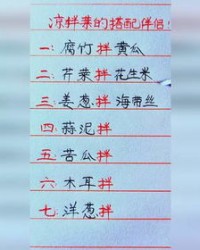 凉拌菜的搭配伴侣!
一:腐竹拌黄瓜
二:芹菜拌花生米
三:姜葱拌海带丝
四:蒜泥拌
五:苦瓜拌
六:木耳拌
七:洋葱拌